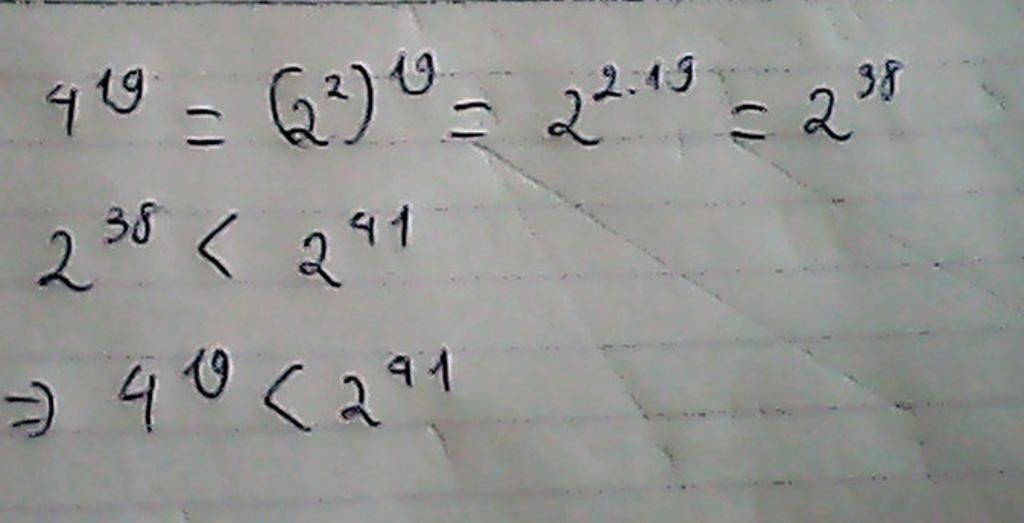 4¹⁹ = (2²)¹⁹ = 2²·¹⁹ = 2³⁸
2³⁸ < 2⁴¹
⇒ 4¹⁹ < 2⁴¹